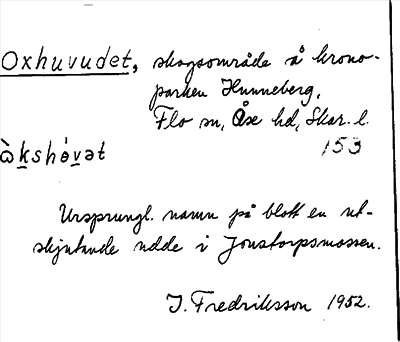 Oxhuvudet, skogsområde å krono-
parken Hunneberg,
Flo sn, Åse hd, Skar. l.
153
ὼkshǿvət
Ursprungl. namn på blott en ut-
skjutande udde i Jonstorpsmossen.
I. Fredriksson 1952.